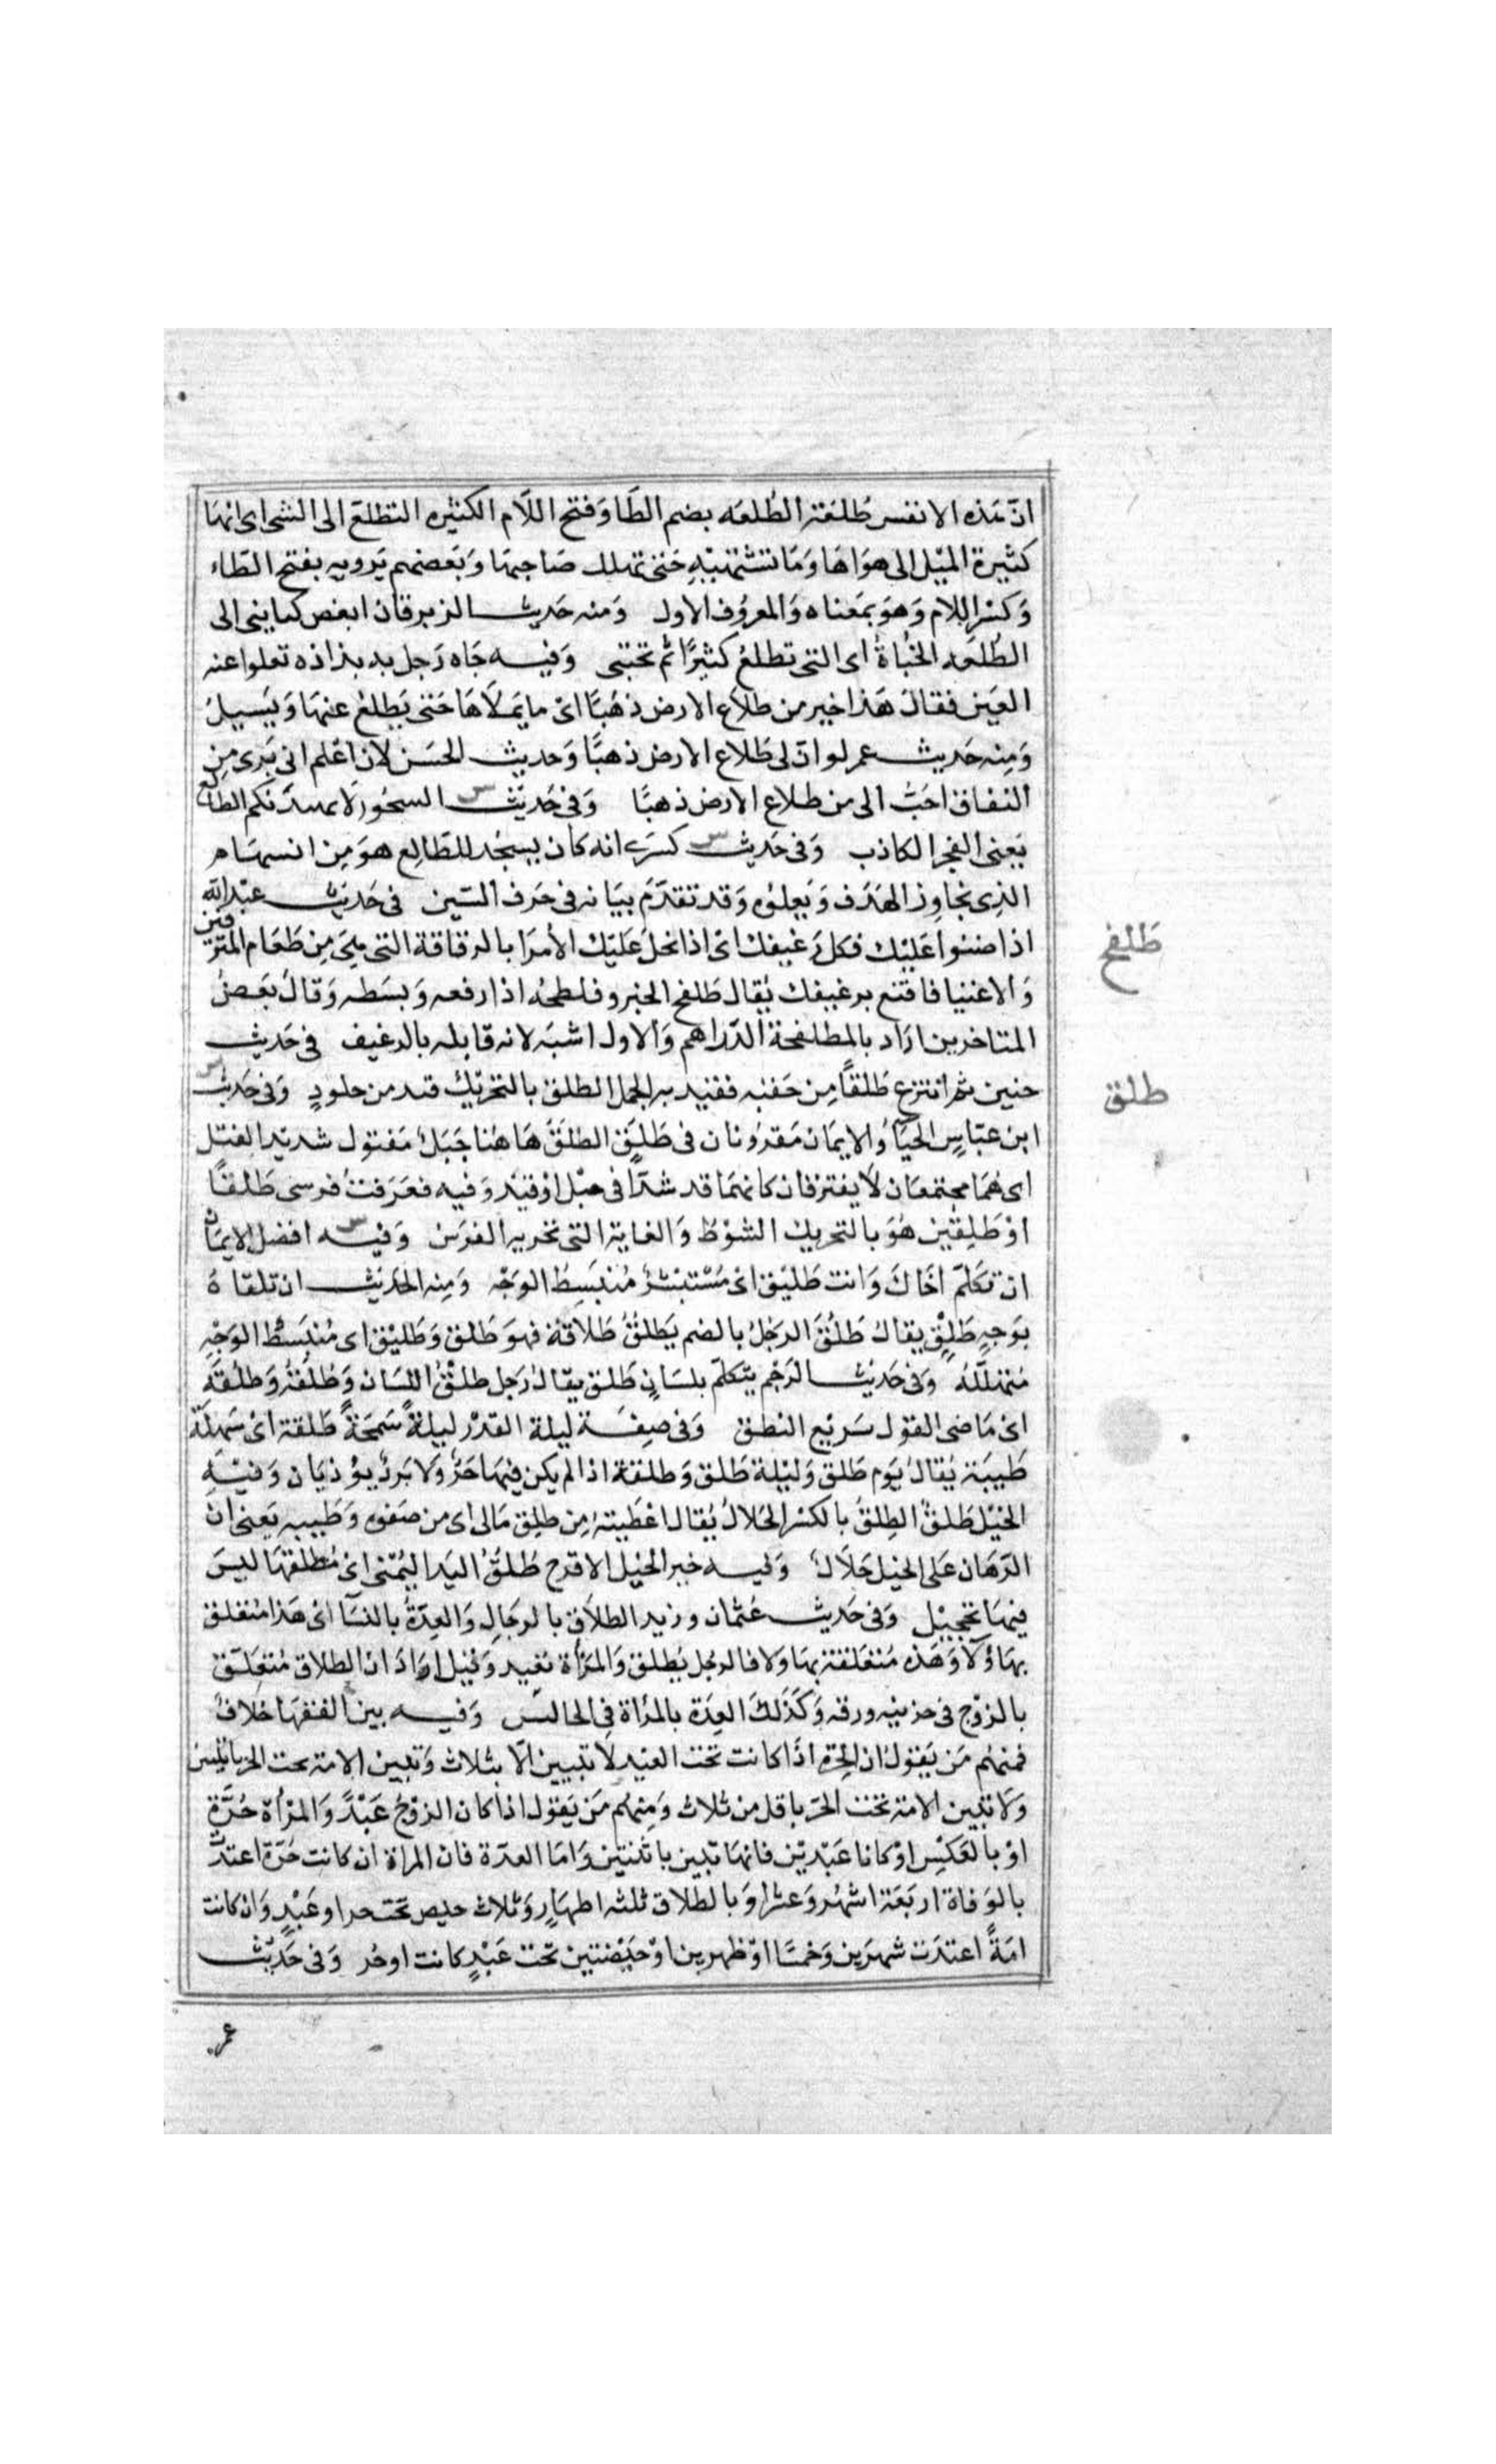 انّ هذه الانفس طُلَعَة الطُلَعَه بضم الطَا وَفتح اللَام الكثيره التطلع الى الشى اى انهَا
كثيرة الميْل الى هوَاهَا وَمَا تشتهيْهِ حَتى تهلك صَاحبهَا وَبَعضهم يَرويه بفتح الطّاء
وَكسْر اللام وَهوَ بمَعْناه وَالمعروُف الاول وَمنه حَديث الزبرقان ابغض كنايني الى
الطُلَعَه الخُبأةُ اى التى تطلعُ كثيرًا ثم تختبى وَفيه جَاه رَجل به بذاذه تعلوا عنه
العَين فقالَ هَذا خير من طلَاع الارض ذهَبًا اىْ مَا يَملَاهَا حَتى يَطلعُ عنهَا وَيَسيلُ
وَمِنه حَديث عمر لو انّ لى طَلاع الارض ذهبًا وَحديث الحسَن لان اعْلم انى بَرى مِن
النفاق احَبُّ الى من طلاع الارض ذهبًا وَفى حَديث السحُور لَا يهيدَنكم الطالع
يَعنى الفجر الكاذب وَفى حَديث كسرَى انه كان يسجُد للطَالِع هوَ مِن السهَام
الذِى يجَاوز الهَدَف وَيَعلوُه وَقد تقدّمَ بيَانه فى حَرف السّين فى حَديث عبْد الله
اذا ضنوا عَليْك فكل رَغيفك اىْ اذا بخلَ عَليْك الأمرَا بالرقاقة التى هِىَ مِن طَعَام المترفين
وَالاغنيا فاقنع برغيفك يُقال طَلفح الخبز وفلطحُه اذا رفعه وَبسَطه وَقالَ بَعضُ
المتاخرين ارَاد بالمطلفحة الدّرَاهم وَالاول اشبَه لانه قابله بالرغيف فى حَديث
حنين ثم انتزع طَلقًا مِن حَقبه فقيد به الجمل الطلق بالتحريْك قيد من جلودٍ وَفى حَديث
ابن عبّاسٍ الحيَاُ والايمَان مَقرُونان فى طَلَقٍ الطلَقُ هَاهُنا حَبَلُ مَفتول شديد الفتل
اى هُمَا مجتمعَان لَا يفترقان كانهمَا قد شدّا فى حبْل اوْ قيْد وَفيه فعَرَفتُ فرسى طَلقًا
اوْ طَلِقَين هوَ بالتحريك الشوْطُ وَالغاية التى تجريه الفرَس وَفيه افضل الايمَان
ان تكلمّ اخَاكَ وَانت طَليَق اىْ مُسْتبْشرُ مُنبَسِطُ الوَجْه وَمِنه الحديث ان تلقاهُ
بوَجهٍ طَلِقٍ يقالُ طَلُقَ الرَجُلُ بالضم يَطلقُ طَلَاقةً فهوَ طَلق وَطَليْق اى مُنبَسطُ الوَجْهِ
مُتهَلّلُهُ وَفى حَديث الرَحِم يتَكلمّ بلسَانٍ طَلق يقالُ رَجل طلْقُ اللسَان وَطُلُقُهُ وَطلُقَه
اىْ مَاضى القوْل سَريْع النطق وَفى صِفة ليلة القدْر ليلةً سَمحَةً طَلقة اىْ سَهلَة
طَيبَة يُقالُ يَوم طَلق وَليْلة طَلق وَطلقة اذا لم يكن فيهَا حَرٌ وَلا بَردٌ يوْذيَان وَفيْهِ
الخيْل طَلقُ الطِلقُ بالكسْر الحَلالُ يُقال اعْطَيته مِن طلِق مَالى اى من صَفوه وَطَيبه يَعنى انّ
الرّهَان عَلى الخيْل حَلَالُ وَفيه خير الخيْل الاقرح طُلُقُ اليَد اليُمْنى اىْ مُطلقهَا ليسَ
فيهَا تحجيْل وَفى حَديث عُثمان وزيد الطلاق بالرجَالِ وَالعِدّةُ بالنسَآ اىْ هَذا مُتعَلق
بهَاؤلَا وَهَذه مُتعَلقة بهَاولا فالرجُل يُطلق وَالمرْأة تعتد وَقيْل ارَادَ ان الطلاق مُتعَلّق
بالزوْج فى حريته ورقه وَكَذَلكَ العِدّة بالمرْاة فى الحالين وَفيه بين الفقهَا خلافُ
فمنهُم مَن يَقوُل ان الحرّه اذَا كانت تحت العَبْد لَا تبيين الّا بثلاث وَتبين الامة تحت الحر باثنتين
وَلَا تبين الامة تحت الحرّ باقل من ثلاث وَمِنهُم مَن يَقول اذا كان الزوْجُ عَبْدً وَالمرْأة حُرّة
اوْ بالعَكسْ اوْ كانا عَبْديْن فانهَا تبين باثنتيْن وَامَا العدّة فان المراة ان كانت حُرّة اعتدّت
بالوَفاة اربَعَة اشهُر وَعشرا وَبالطلاق ثلثه اطهَارٍ وَثلاث حيض تحت حر او عَبْدٍ وَان كانت
امَةً اعتدَت شهرَين وَخمسًا اوْ طهرين اوْ حَيْضتين تحت عَبْدٍ كانت اوحُر وَفى حَديْث
عمر
طَلفح
طلق